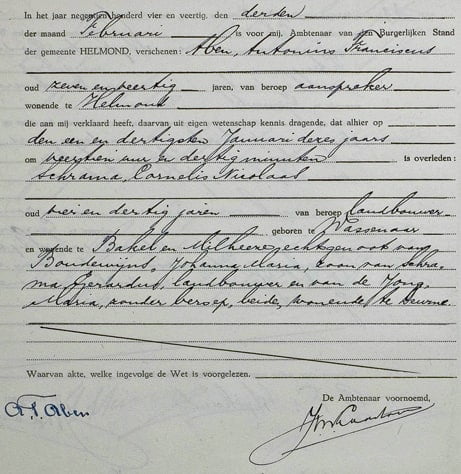 In het jaar negentien honderd vier en veertig, den derden
der maand Februari is voor mij, Ambtenaar van den Burgerlijken Stand
der gemeente HELMOND, verschenen: Aben, Antonius Franciscus
oud zeven en veertig jaren, van beroep aanspreker
wonende te Helmond
die aan mij verklaard heeft, daarvan uit eigen wetenschap kennis dragende, dat alhier op
den een en dertigsten Januari dezes jaars
om veertien uur en dertig minuten is overleden:
Schrama, Cornelis Nicolaas
oud vier en dertig jaren van beroep landbouwer
geboren te Wassenaar
en wonende te Bakel en Milheeze, echtgenoot van
Boudewijns, Johanna Maria, zoon van Schra-
ma, Gerardus, landbouwer en van de Jong,
Maria, zonder beroep, beide wonende te Deurne.
Waarvan akte, welke ingevolge de Wet is voorgelezen.
De Ambtenaar voornoemd,
A.F. Aben